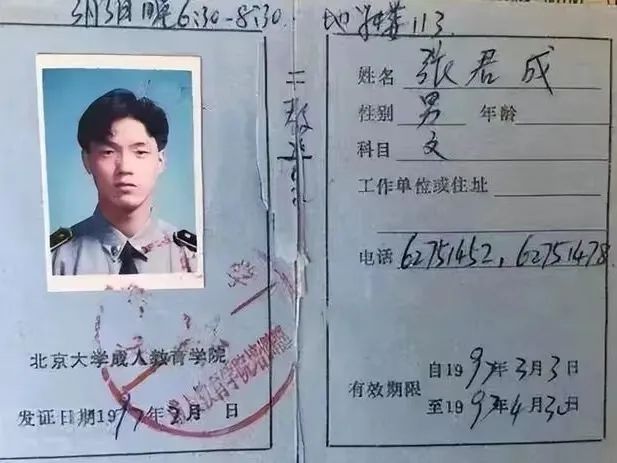 3月3日 6:30-8:30 地学楼113
北京大学成人教育学院
发证日期1997年2月 日
姓名 张君成
性别 男 年龄
科目 文
工作单位或住址
电话 62751452, 62751478
有效期限
自1997年3月3日
至1997年4月30日